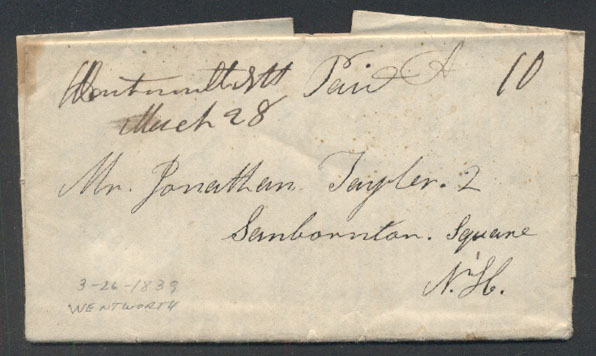 Wentworth NH Paid 10
March 28
Mr. Jonathan Tayler. 2
Sanbornton. Square
N. H.
3-26-1839
WENTWORTH